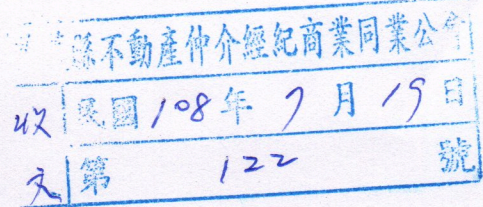 縣不動產仲介經紀商業同業公會
收文
民國108年7月19日
第122號